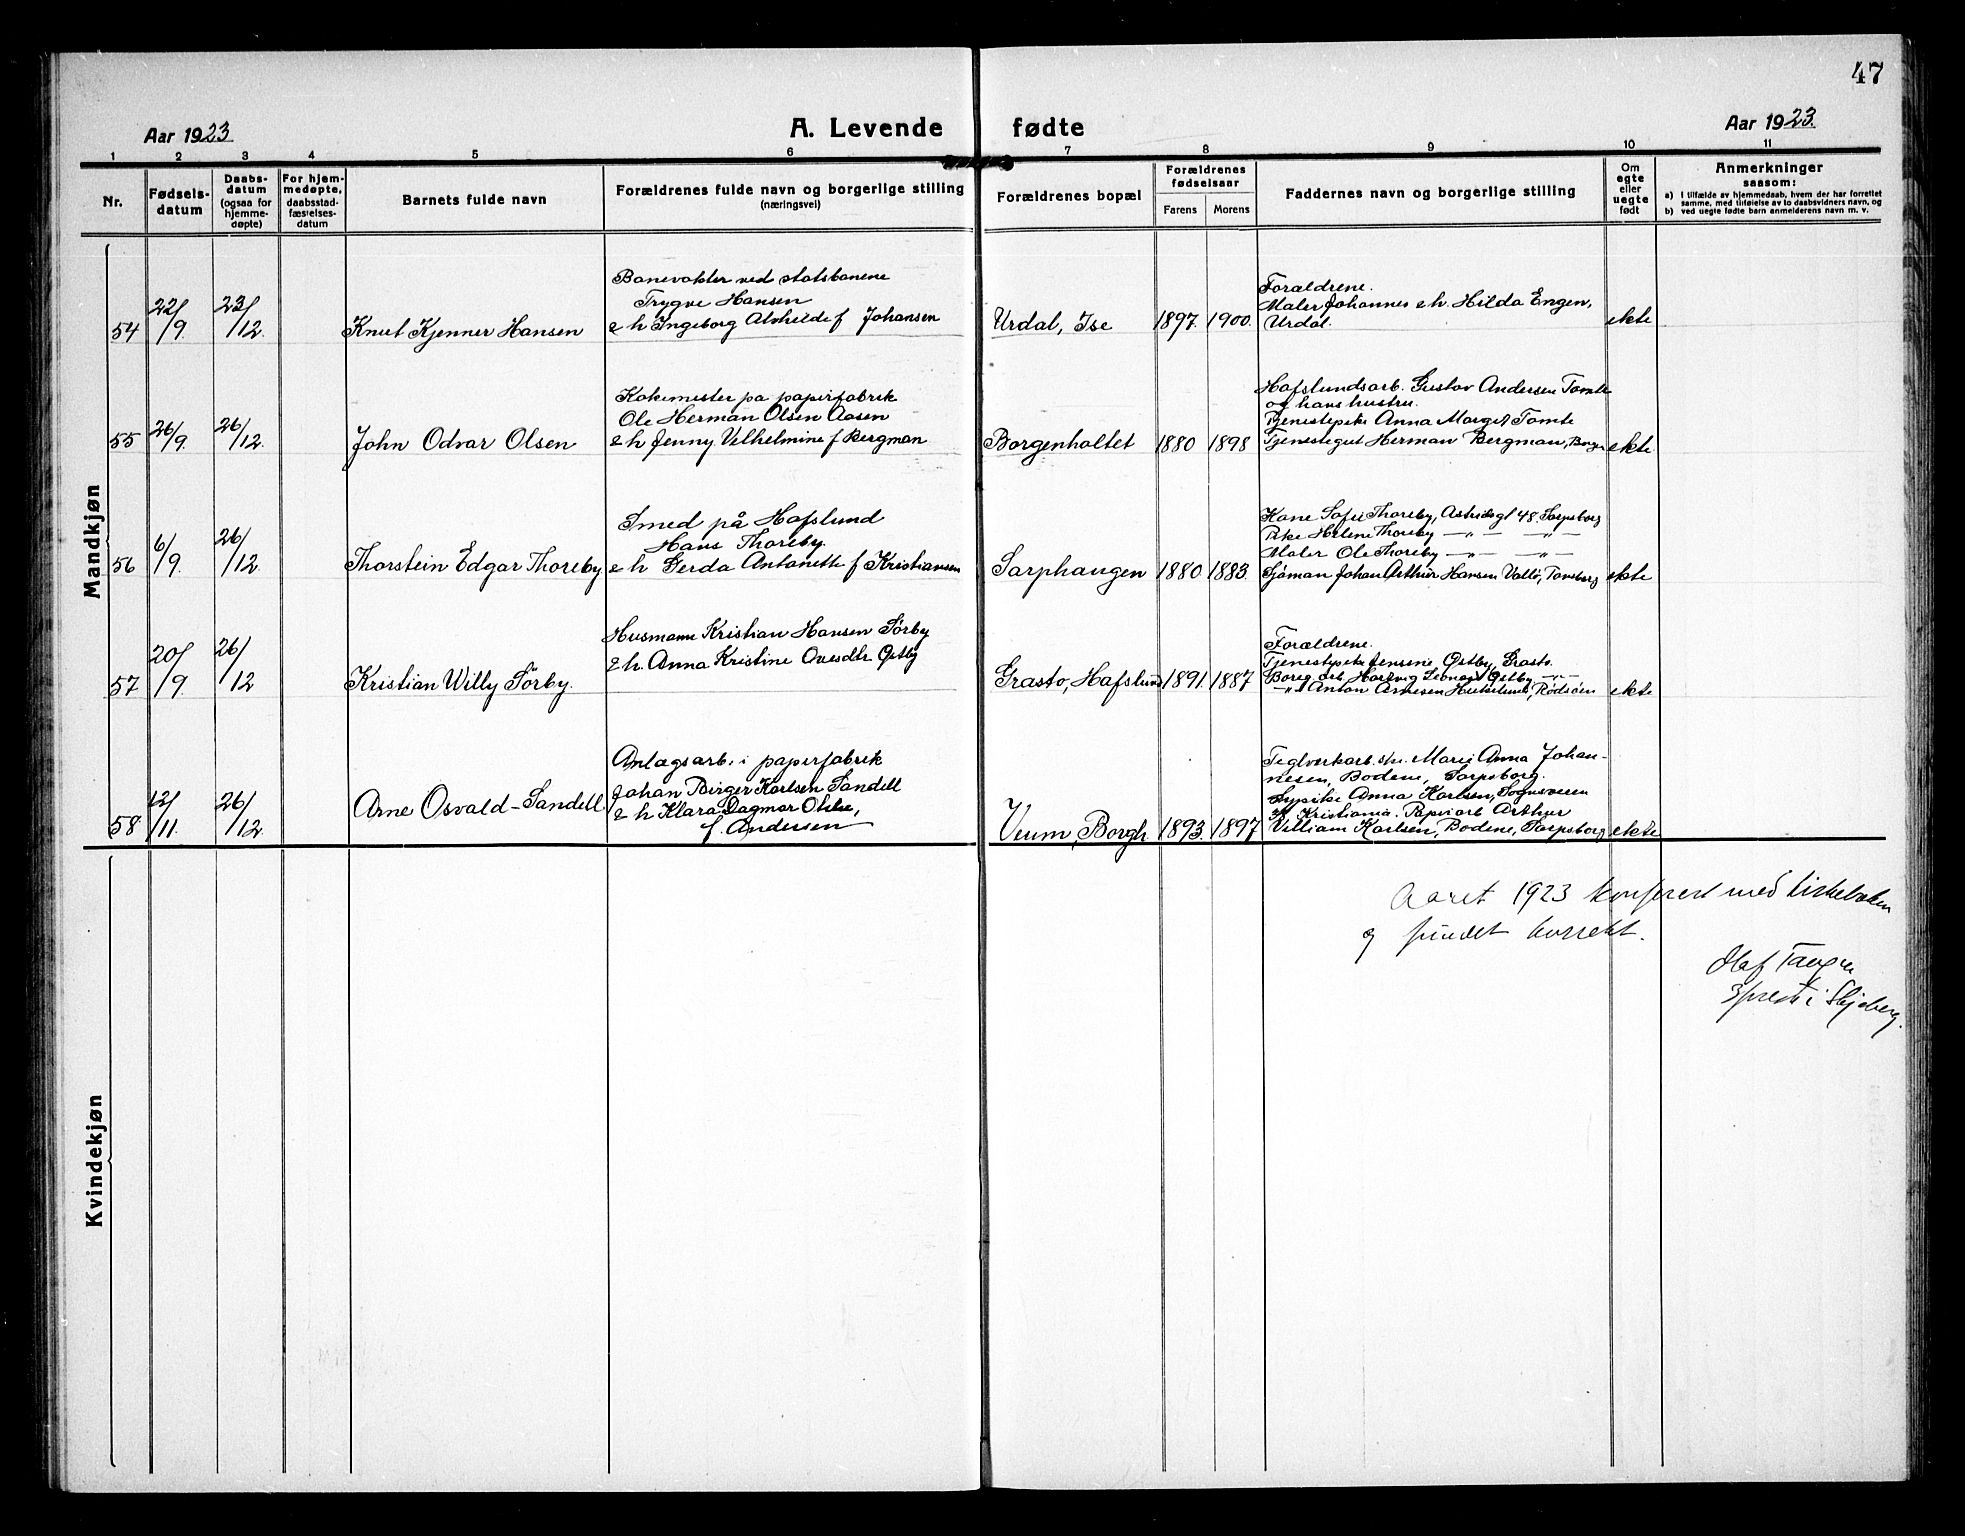 47
Aar 1923
A. Levende fødte
Aar 1923.
1 2 3 4 5 6 7 8 9 10 11
Nr.
Fødselsdatum
Daabsdatum (ogsaa for hjemmedøpte)
For hjemmedøpte, daabsstadfæstelsesdatum
Barnets fulde navn
Forældrenes fulde navn og borgerlige stilling
(næringsvei)
Forældrenes bopæl
Forældrenes fødselsaar
Farens Morens
Faddernes navn og borgerlige stilling
Om egte eller uegte født
Anmerkninger
saasom:
a) I tilfælde av hjemmedaab, hvem der har forrettet
samme, med tilføielse av to daabsvidners navn, og
b) ved uegte fødte barn anmelderens navn m. v.
Mandkjøn
54 22/9. 23/12. Knut Kjenner Hansen
Banevokter ved statsbanene
Trygve Hansen
& h Ingeborg Alvhilde f Johansen
Urdal, Ise 1897. 1900.
Foraldrene.
Maler Johannes & h. Hilda Engen,
Urdal.
ekte
55 26/9. 26/12. John Odvar Olsen
Kokemester pa papirfabrik
Ole Herman Olsen Aasen
& h Jenny Vilhelmine f Bergman
Borgenholtet 1880 1898
Hafslundsarb. Gustav Andersen Tomte
og hans hustru.
Tjenestepike Anna Marget Tomte
Tjenestegut Herman Bergman, Borgen
ekte
56 6/9. 26/12 Thorstein Edgar Thoreby
Smed på Hafslund
Hans Thoreby.
& h Gerda Antonette f Kristiansen
Sarphaugen 1880 1883.
Kone Sofie Thoreby, Astridsgt 48. Sarpsborg
Pike Helene Thoreby —„— —„—
Maler Ole Thoreby —„— —„—
Sjöman Johan Arthur Hansen Vallö, Tonsberg
ekte
57 20/9. 26/12 Kristian Willy Sörby.
Husmann Kristian Hansen Sörby
& h. Anna Kristine Ovesdtr Østby
Grasto, Hafslund 1891. 1887
Foraldrene.
Tjenestepike Jensine Østby, Grasto.
Boreg. arb Hartvig Leonard Østby —„—
—„— Anton Arnesen Hutselund, Rödsöen
ekte
58 12/11. 26/12. Arne Osvald-Sandell
Anlagsarb. i papirfabrik
Johan Birger Karlsen Sandell
& h Klara Dagmar
f. Andersen
Veum, Borgh 1893. 1897
Teglverkarb. Marie Anna Johannesen, Bodene, Sarpsborg.
Sypike Anna Karlsen, Sognsveien
Kristiania. Papirarb Arthur
Villiam Karlsen, Bodene, Sarpsborg
ekte
Kvindekjøn
Aaret 1923 konferert med kirkeboken
og fundet korrekt.
Olaf Tangen
Sprest i Skjeberg.